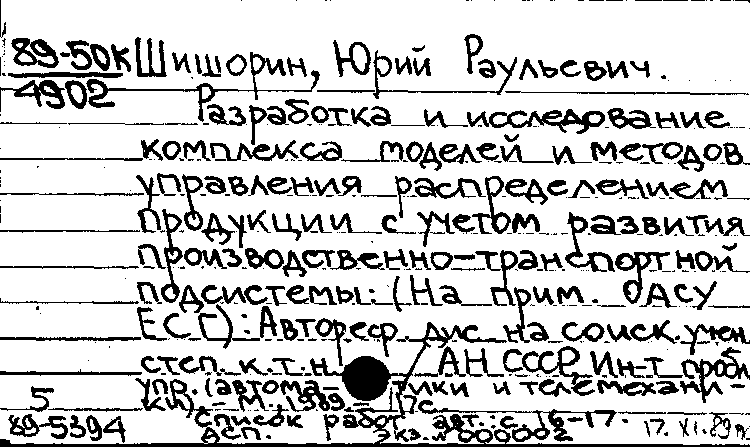 89-50к Шишорин, Юрий Раульевич.
4902
Разработка и исследование
комплекса моделей и методов
управления распределением
продукции с учетом развития
производственно-транспортной
подсистемы: (На прим. ОАСУ
ЕСГ): Автореф. дис. на соиск. учен.
степ. к.т.н. АН СССР, Ин-т пробл.
упр. (автоматики и телемехани-
ки). - М., 1989. - 17с.
5
Список работ авт.: с. 16-17.
89-5394
дсп. экз. N 000002
17.XI.89г.